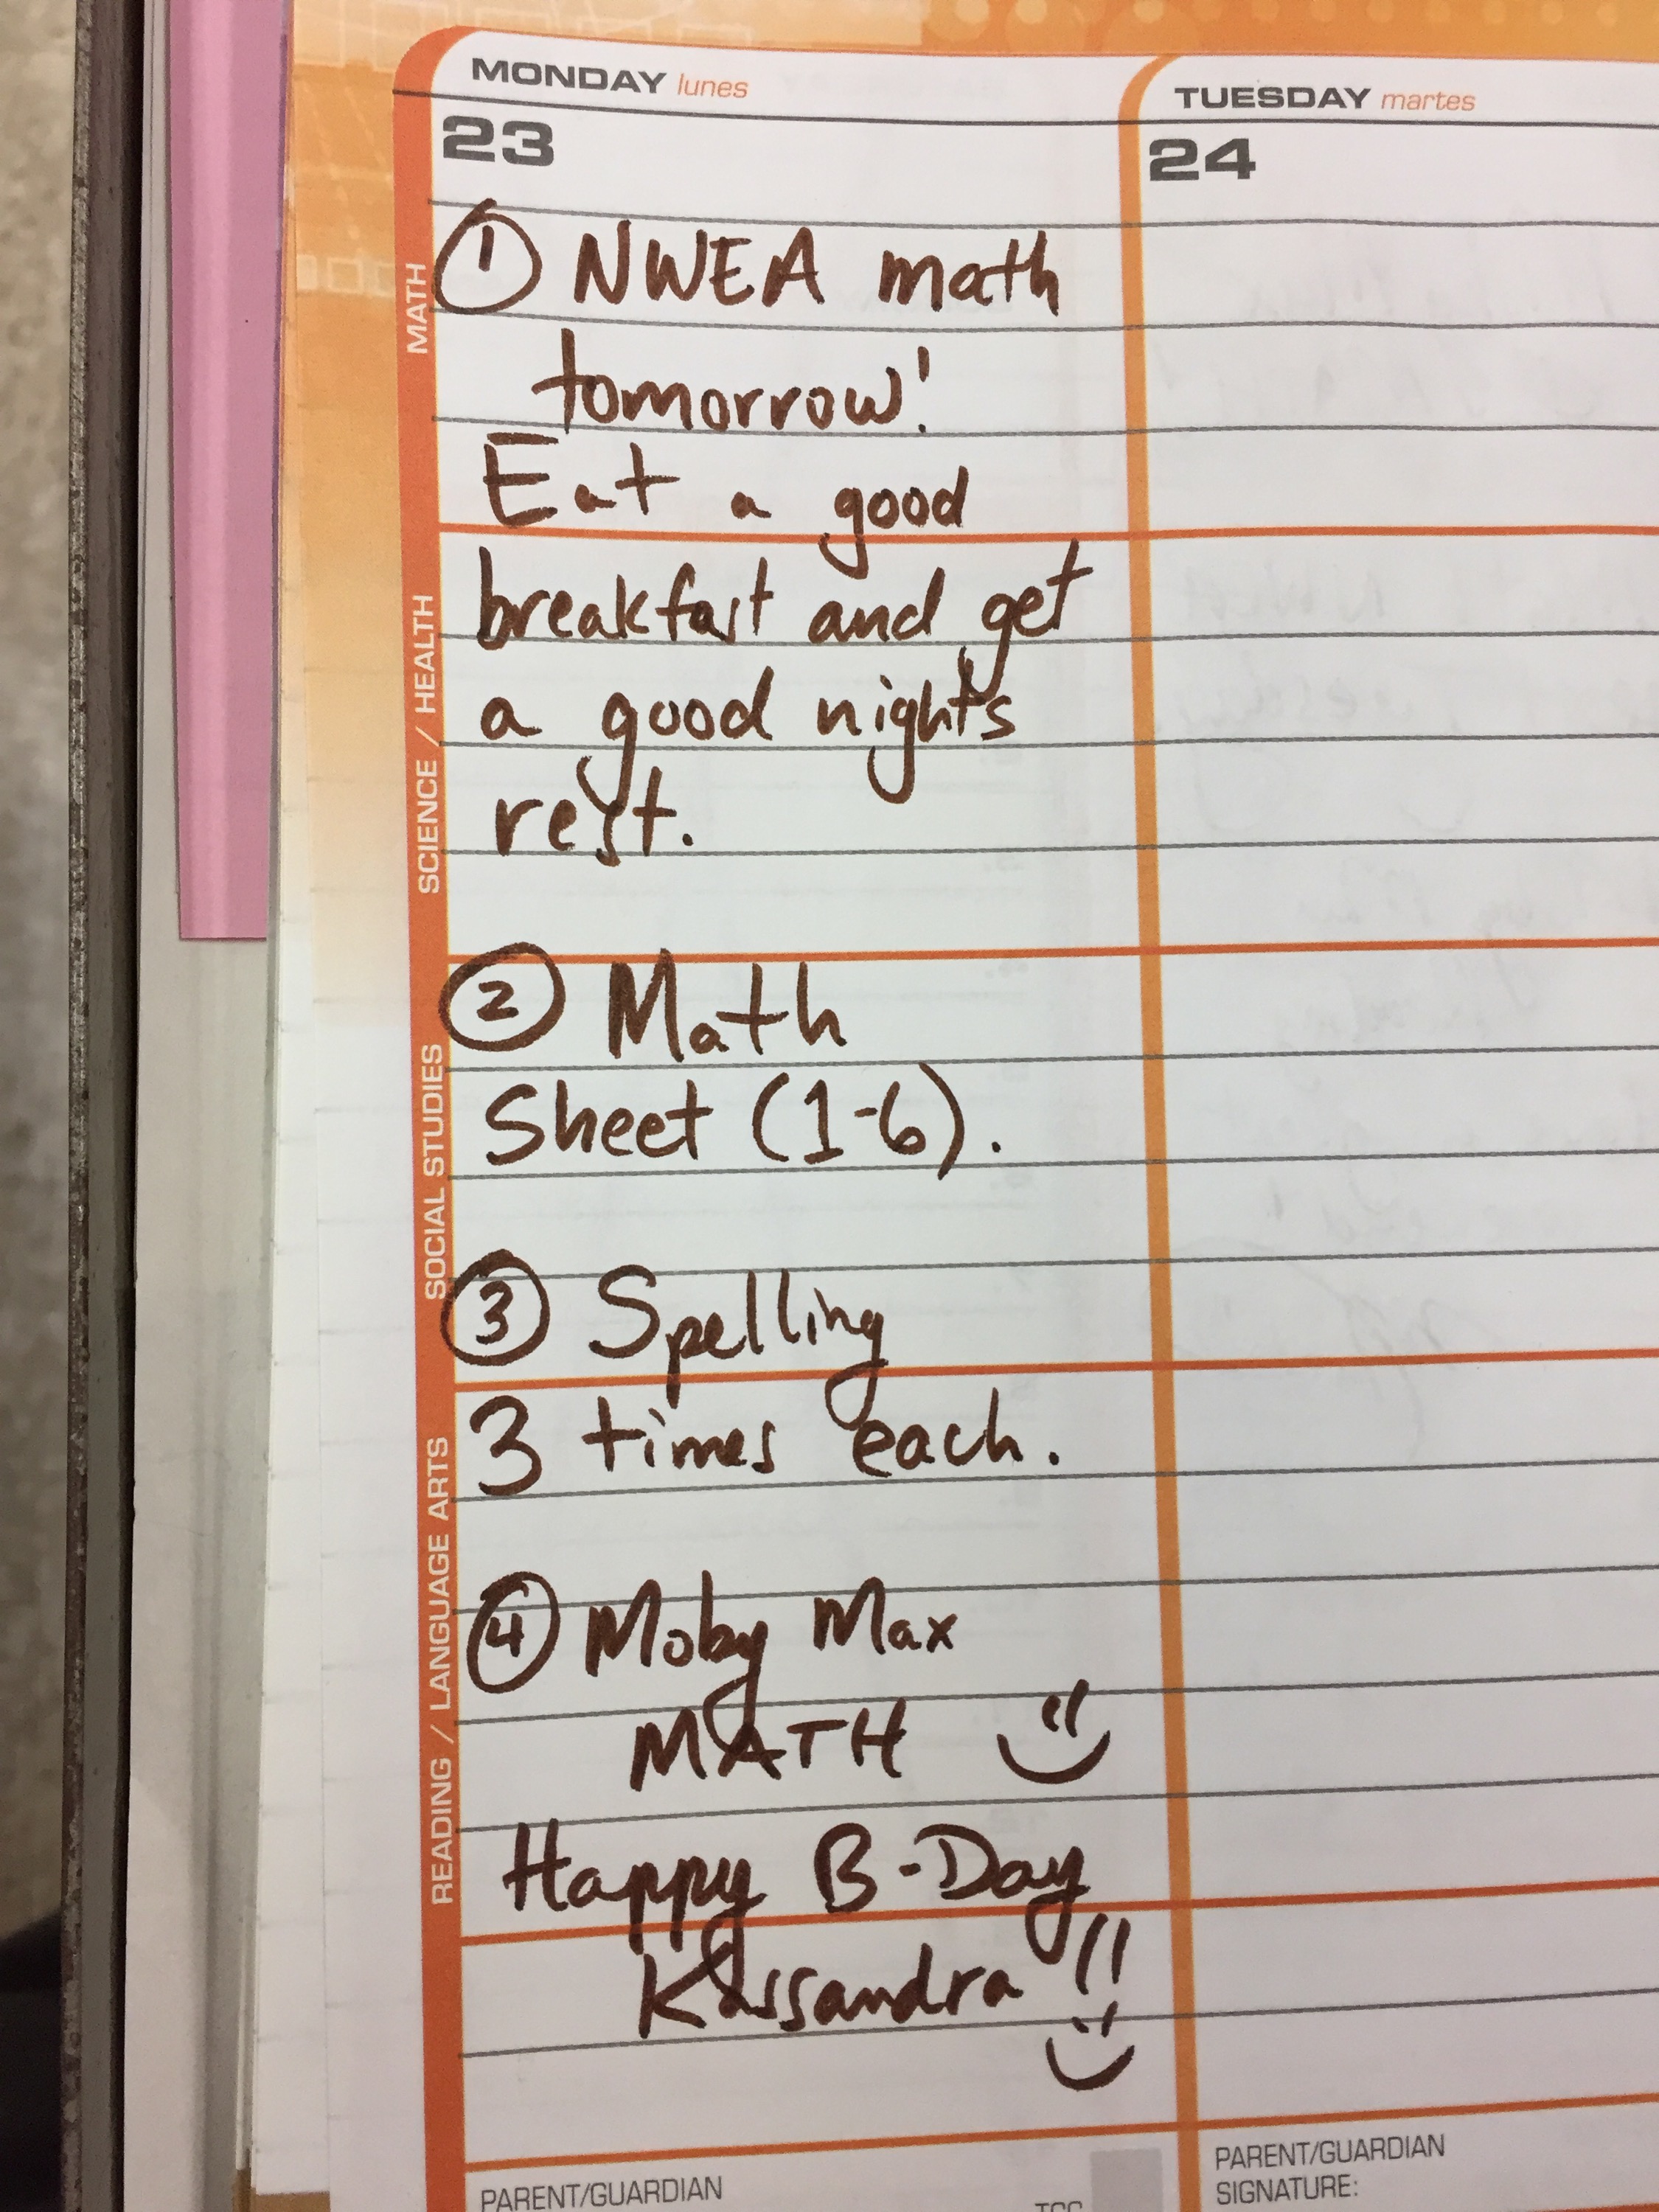 MONDAY lunes
23
MATH
① NWEA math
tomorrow!
Eat a good
SCIENCE / HEALTH
breakfast and get
a good night's
rest.
SOCIAL STUDIES
② Math
Sheet (1-6).
③ Spelling
READING / LANGUAGE ARTS
3 times each.
④ Moby Max
MATH
Happy B-Day
Kassandra!!
PARENT/GUARDIAN
TUESDAY martes
24
PARENT/GUARDIAN
SIGNATURE: